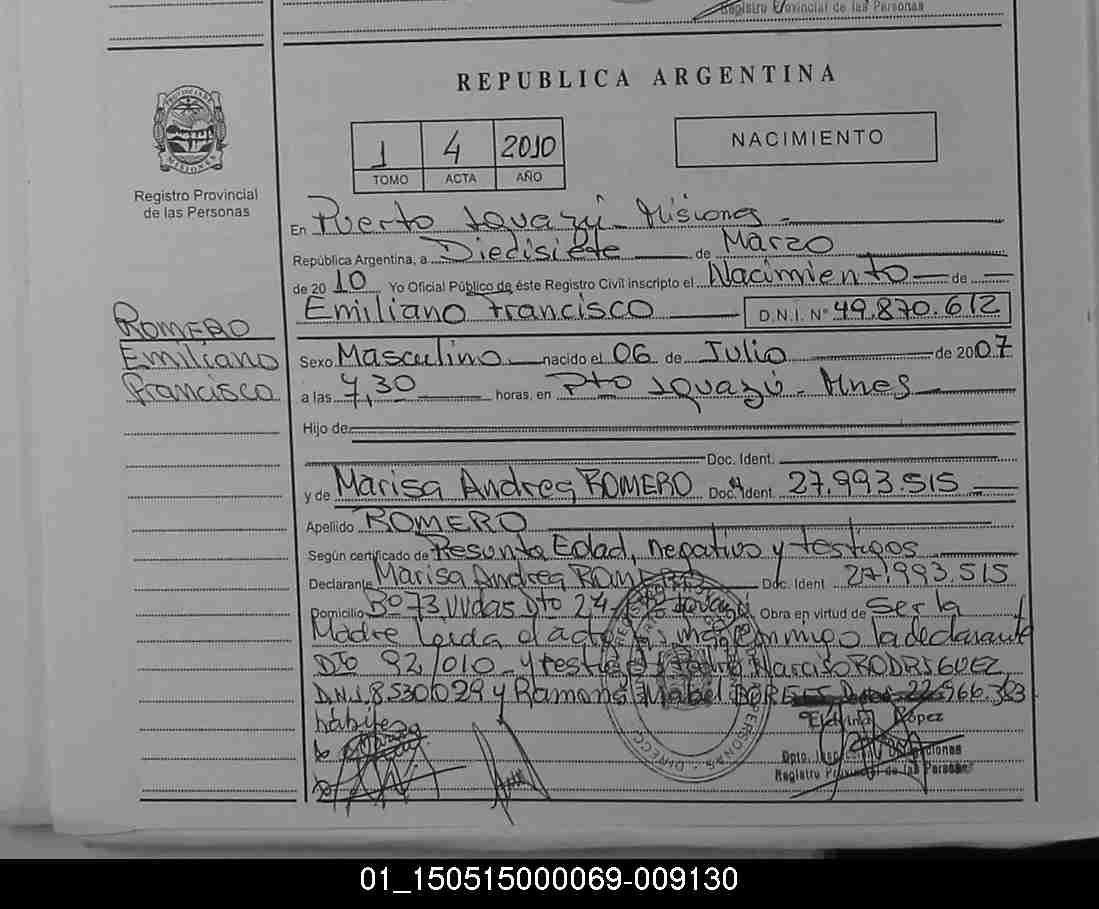 Registro Provincial de las Personas
REPUBLICA ARGENTINA
1 4 2010
TOMO ACTA AÑO
NACIMIENTO
PROVINCIA DE MISIONES
Registro Provincial
de las Personas
En Puerto Iguazú Misiones
República Argentina, a Diedisiete de Marzo
de 2010 Yo Oficial Público de éste Registro Civil inscripto el Nacimiento de
Emiliano Francisco D.N.I. N° 49.870.612
ROMERO
Emiliano
Francisco
Sexo Masculino nacido el 06 de Julio de 2007
a las 7,30 horas, en Pto Iguazú - Mnes
Hijo de
Doc. Ident.
y de Marisa Andrea ROMERO Doc. Ident 27.993.515
Apellido ROMERO
Según certificado de Resunta Edad, negativo y testigos
Declarante Marisa Andrea ROMERO Doc. Ident 27.993.515
Domicilio B° 73 Vvdas Dto 24 Iguazú Obra en virtud de Ser la
Madre Leida el acta conmigo la declarante
Dto 92/010 y testigos Narciso RODRIGUEZ
D.N.I 8.530.029 y Ramona Mabel 22.966.353
hábiles
López
Dpto.
Registro Provincial de las Personas
01_150515000069-009130